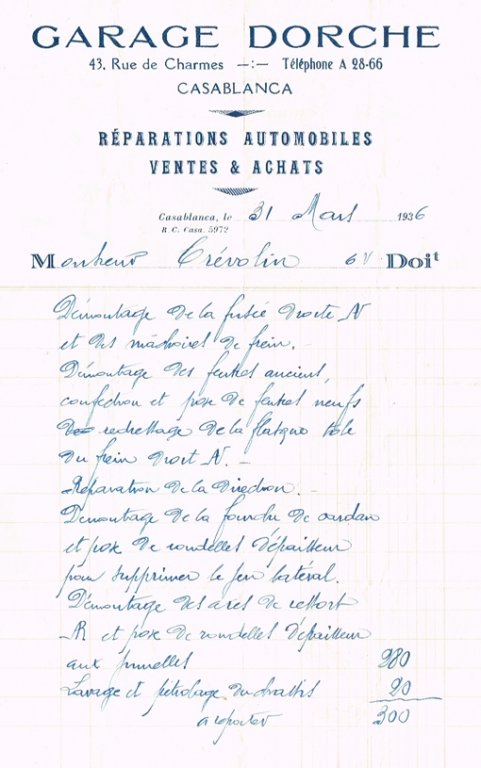 GARAGE DORCHE
43, Rue de Charmes —:— Téléphone A 28-66
CASABLANCA
RÉPARATIONS AUTOMOBILES
VENTES & ACHATS
Casablanca, le 31 Mars 1936
R. C. Casa. 5972
Monsieur Crévolin Doit
Démontage de la fusée droite AV
et des mâchoires de frein. -
Démontage des feutres anciens,
confection et pose de feutres neufs
redressage de la flasque tôle
du frein droit AV. -
Réparation de la Direction. -
Démontage de la fourche de cardan
et pose de rondelles d'épaisseur
pour supprimer le jeu latéral.
Démontage des axes de ressort
AR et pose de rondelles d'épaisseur
aux jumelles 280
Lavage et pétrolage du chassis 20
a reporter 300